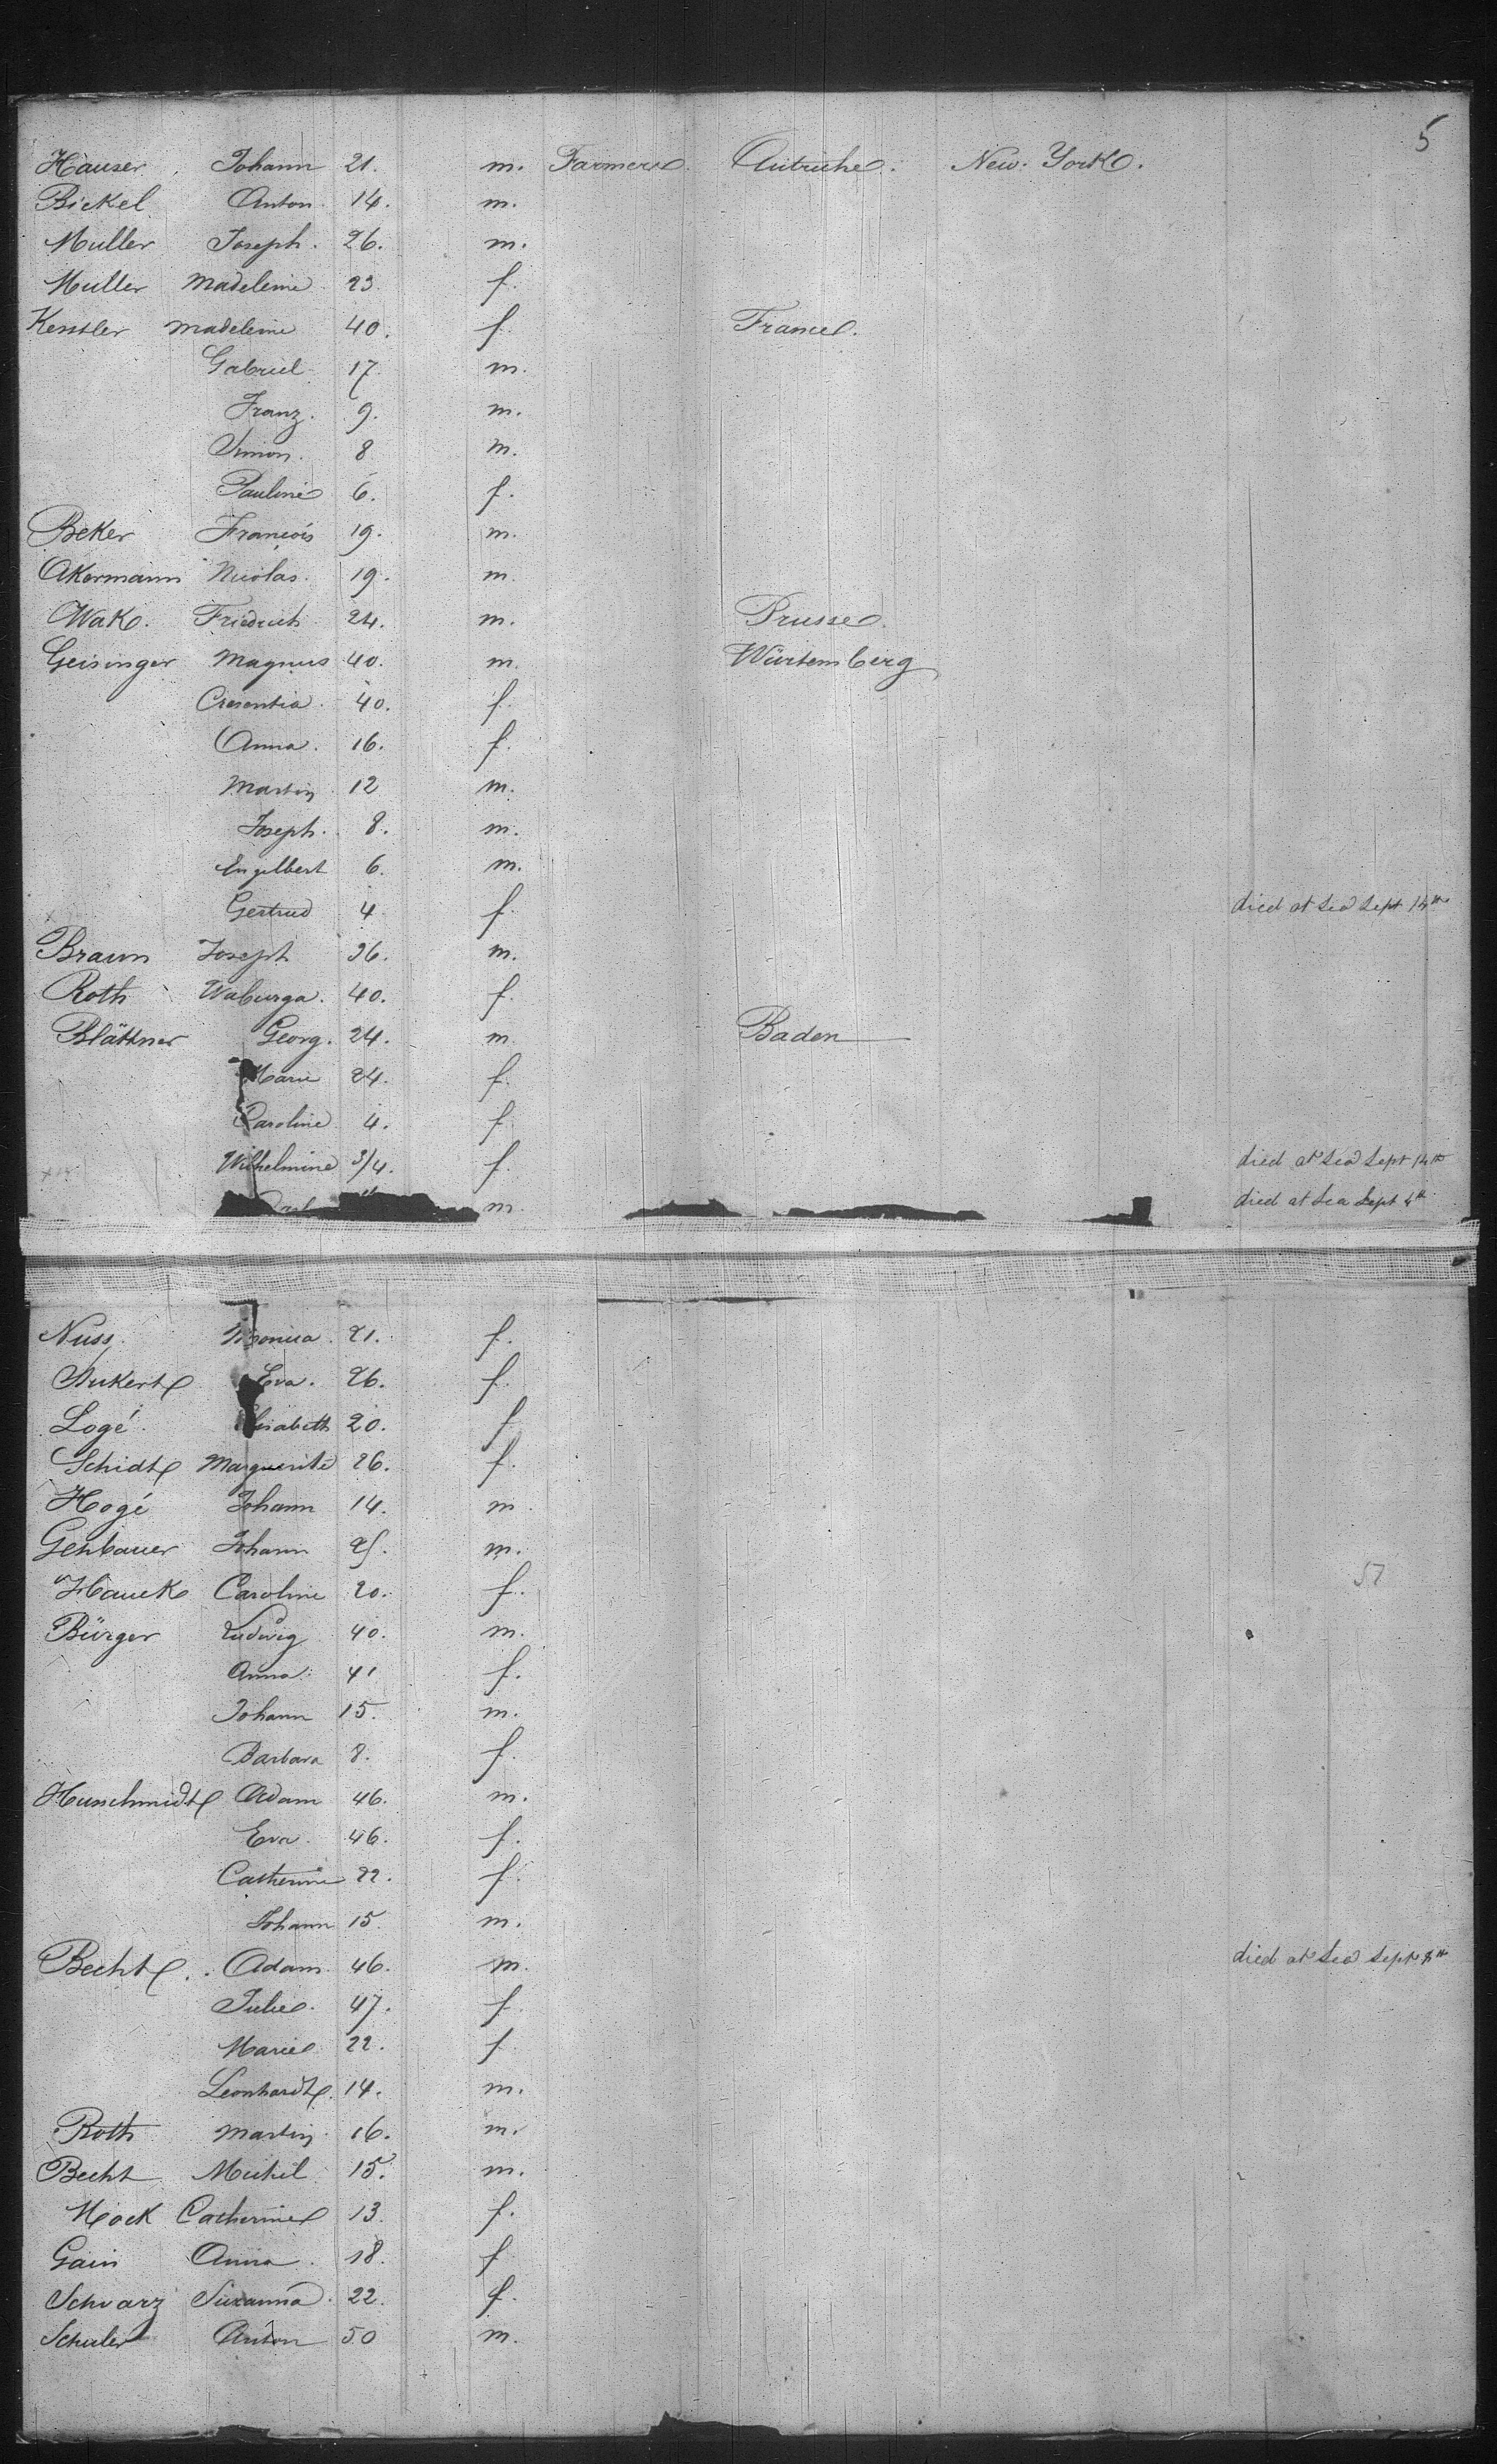 5
Hauser Johann 21. m. Farmers. Autriche. New-York.
Bickel Anton. 14. m.
Muller Joseph. 26. m.
Muller Madeleine 23. f.
Kessler Madeleine 40. f. France.
Gabriel 17. m.
Franz. 9. m.
Simon. 8 m.
Pauline 6. f.
Beker François 19. m.
Akermann Nicolas. 19. m.
Wak. Friedrich 24. m. Prusse.
Geisinger Magnus 40. m. Würtemberg
Cresentia. 40. f.
Anna. 16. f.
Martin 12 m.
Joseph. 8. m.
Engelbert 6. m.
Gertrud 4 f. died at sea Sept 14th
Braun Joseph 36. m.
Roth Waburga. 40. f.
Blättner Georg. 24. m. Baden
Marie 24. f.
Caroline 4. f.
Wilhelmine 3/4. f. died at sea Sept 14th
m. died at sea Sept 4th
Nuss. 21. f.
Eva. 26. f.
Logé. 20. f.
Schidt Marguerite 26. f.
Hogé Johann 14. m.
Gehbauer Johann 25. m.
Hauck Caroline 20. f. 57
Bürger Ludwig 40. m.
Anna 41 f.
Johann 15. m.
Barbara 8. f.
Adam 46. m.
Eva. 46. f.
Catherine 22. f.
Johann 15. m.
Becht. Adam. 46. m. died at sea Sept 8th
Julie. 47. f.
Marie 22. f
Leonhardt. 14. m.
Roth Martin 16. m.
Becht Michel 15. m.
Mock Catherine 13. f.
Gain Anna. 18. f
Schvarz Suzanna. 22. f.
Schuler Anton 50 m.